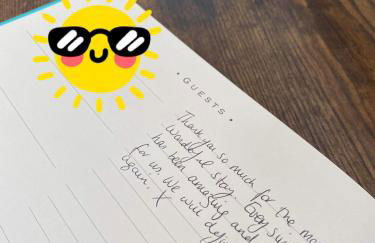 • GUESTS •
Thank you so much for the
wonderful stay. Every
has been amazing and
for us. We will
again. X